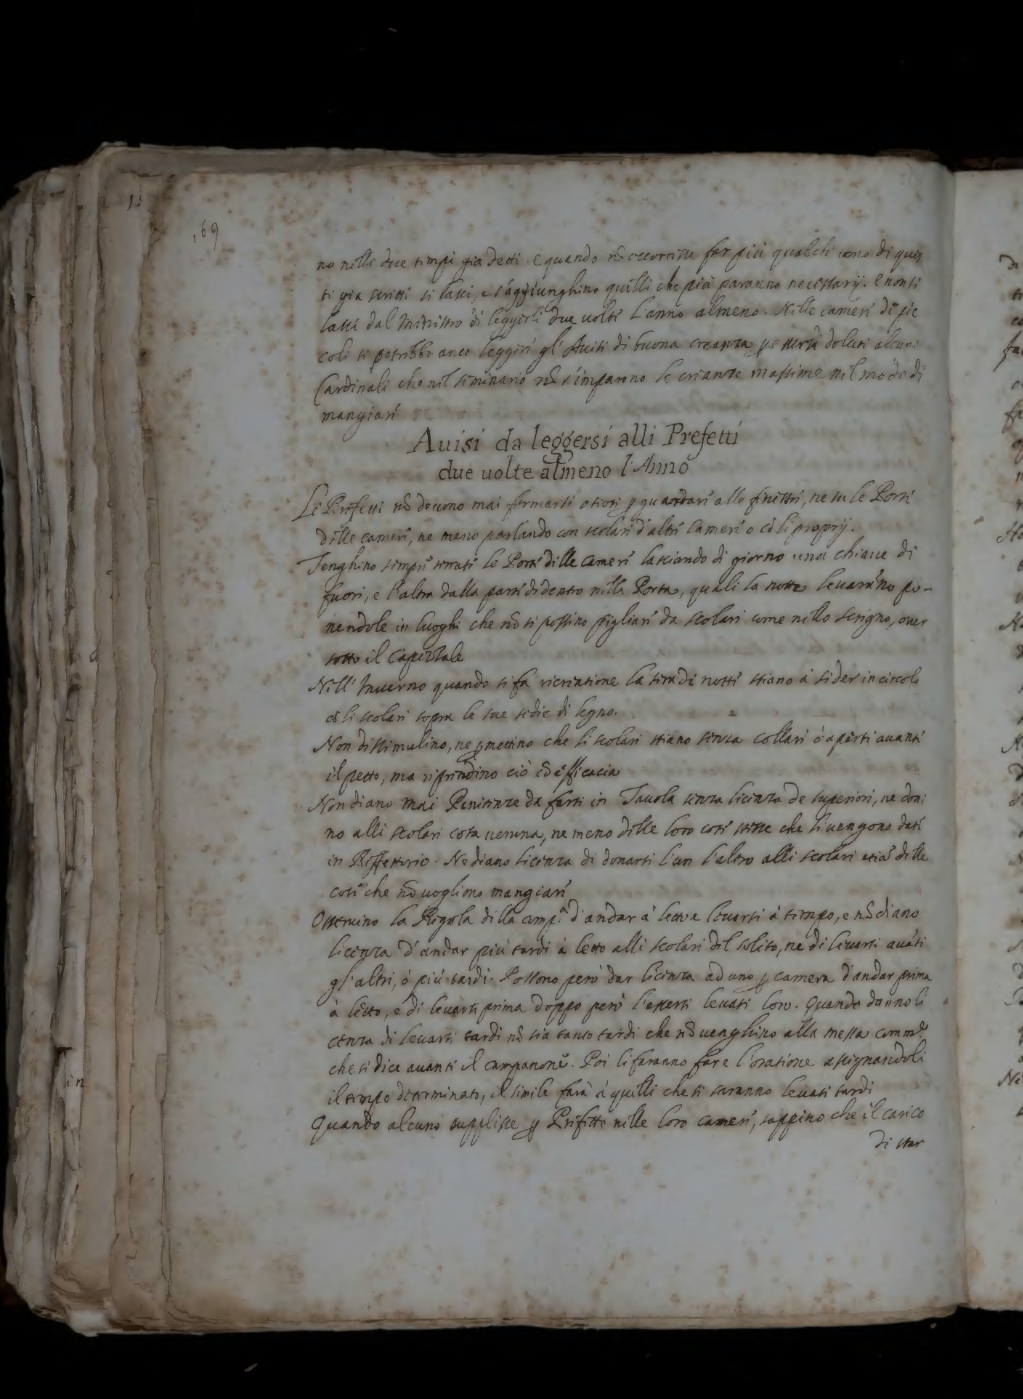 169
no nelli due tempi gia detti. e quando nō occorresse far piu qualch uno di ques
ti gia scritti si lasci, e s'aggiunghino quelli che piu paranno necessarij. e non si
lassi dal Ministro di leggerli due uolte l'anno almeno. Nelle camere de pic
coli si potrebbe anco leggere gl'Auisi di buona creanza doluti alcuni
Cardinali che nel seminario nō s'imparano le crianze massime nel modo di
mangiare
Auisi da leggersi alli Prefetti
due uolte almeno l'Anno
Li Prefetti nō deuono mai fermarsi otiosi ꝑ guardare alle finestre, ne su le Porte
delle camere, ne meno parlando con scolari d'altre camere o cō li proprij.
Tenghino sempre serrate le Porte delle camere lasciando di giorno una chiaue di
fuori, e l'altra dalla parte didentro nella Porta, quali la notte leuarāno po-
nendole in luoghi che nō si possino pigliare da scolari come nello scrigno, ouer
sotto il capezzale
Nell'Inuerno quando si fa ricreatione la sera de notte stiano à seder in circolo
cō li scolari sopra le sue sedie di legno.
Non dissimulino, ne ꝑmettino che li scolari stiano senza collare ò aperti auanti
il petto, ma riprendino ciò cō efficacia
Non diano mai Penitenze da farsi in Tauola senza licenza de superiori, ne doni
no alli scolari cosa ueruna, ne meno delle loro cose stesse che li uengono date
in Reffettorio. Ne diano licenza di donarsi l'un l'altro alli scolari etiā delle
cose che nō uogliono mangiare
Osseruino la Regola della comp.ª d'andar à letto e leuarsi à tempo, e nō diano
licenza d'andar piu tardi à letto alli scolari del solito, ne di leuarsi auāti
gl'altri, ò piu tardi. Possono però dar licenza ad uno ꝑ camera d'andar prima
à letto, e di leuarsi prima doppo però l'essersi leuati loro. Quando danno li
cenza di leuarsi tardi nō sia tanto tardi che nō uenghino alla messa comm.e
che si dice auanti il campanone. Poi li faranno fare l'oratione assignandoli
il tempo determinato, il simile farà à quelli che si saranno leuati tardi
Quando alcuno supplisse ꝑ Prefetto nelle loro camere, sappino che il carico
di star